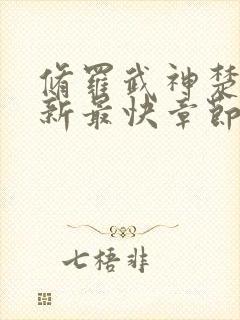 修羅武神楚
新最快章節
七梧非